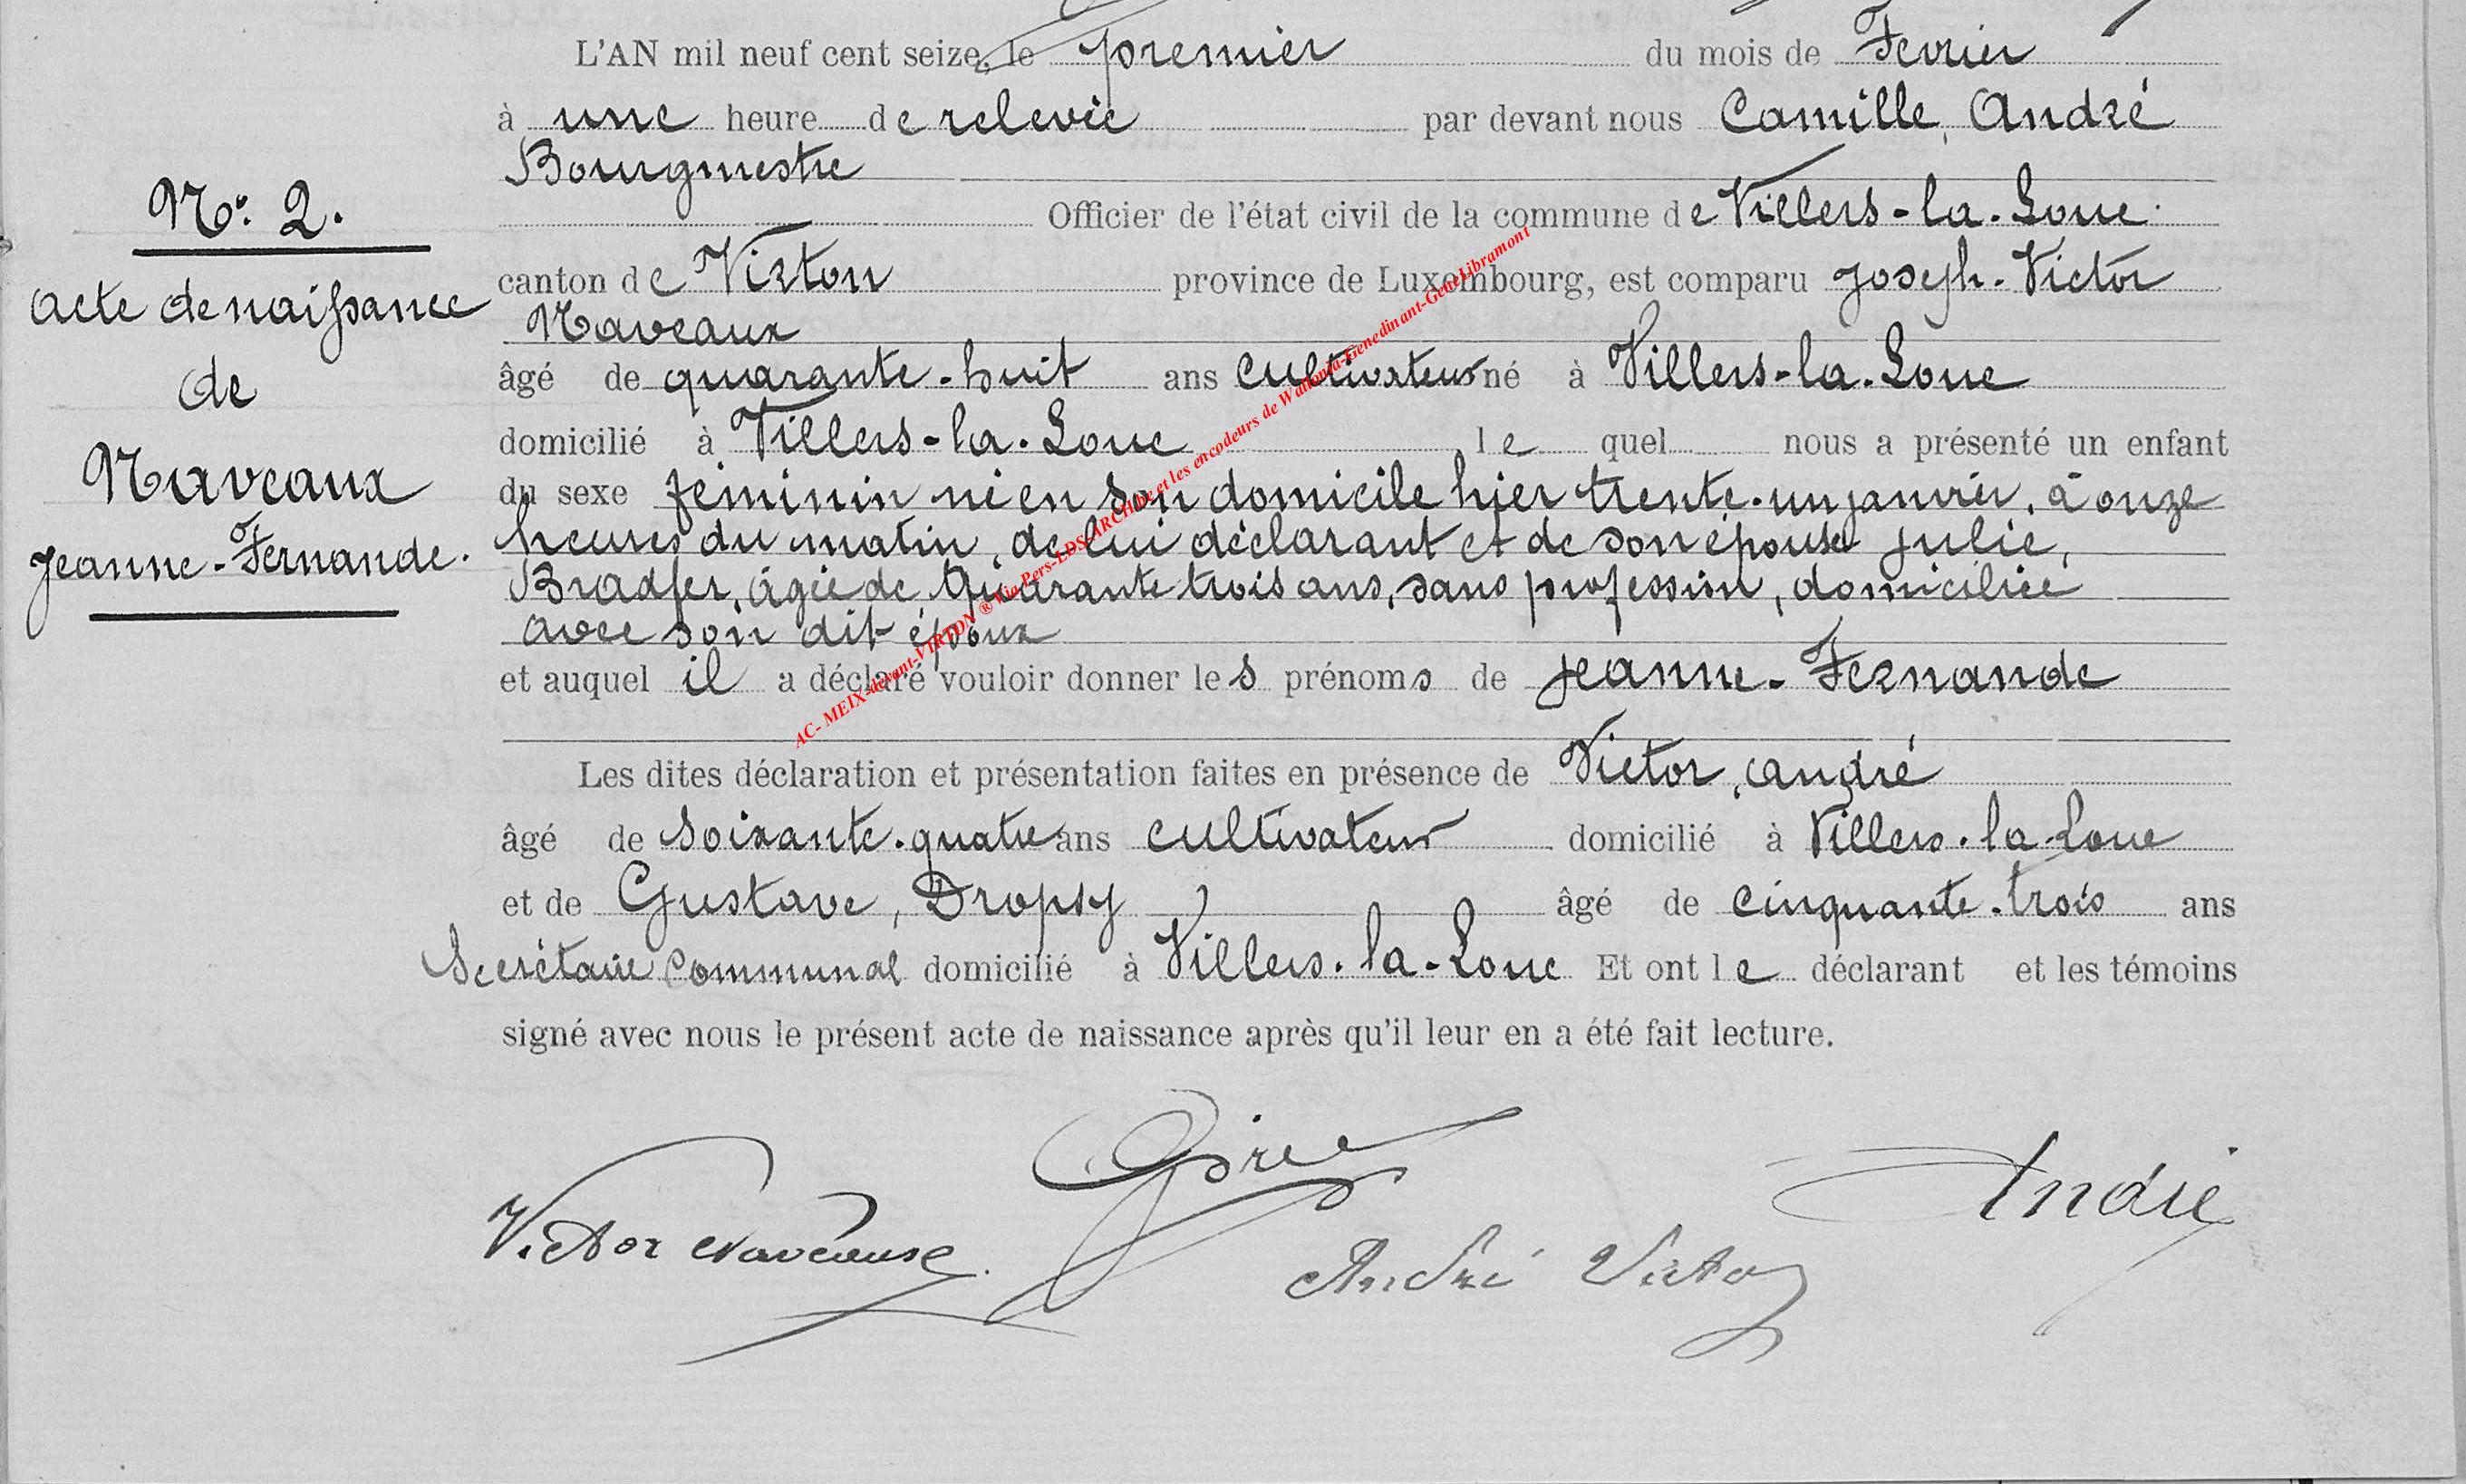 L'AN mil neuf cent seize, le premier du mois de Fevrier
à une heure de relevée par devant nous Camille, André
Bourgmestre
Officier de l'état civil de la commune de Villers-la-Loue
canton de Virton province de Luxembourg, est comparu Joseph-Victor
Naveaux
âgé de quarante-huit ans cultivateur né à Villers-la-Loue
domicilié à Villers-la-Loue le quel nous a présenté un enfant
du sexe féminin né en son domicile hier trente-un janvier, à onze
heures du matin, de lui déclarant et de son épouse Julie,
Bradfer, âgée de quarante trois ans, sans profession, domiciliée
avec son dit époux
et auquel il a déclaré vouloir donner les prénoms de Jeanne-Fernande
Les dites déclaration et présentation faites en présence de Victor, André
âgé de soixante-quatre ans cultivateur domicilié à Villers-la-Loue
et de Gustave, Dropsy âgé de cinquante-trois ans
Secrétaire communal domicilié à Villers-la-Loue Et ont le déclarant et les témoins
signé avec nous le présent acte de naissance après qu'il leur en a été fait lecture.
No. 2.
Acte de naissance
de
Naveaux
Jeanne-Fernande.
AC- MEIX-devant-VIRTON ® Via Pers-LDS-ARCHBe et les encodeurs de Wallonia-Genedinant-GeneLibramont
Victor Naveaux
André Victor
André